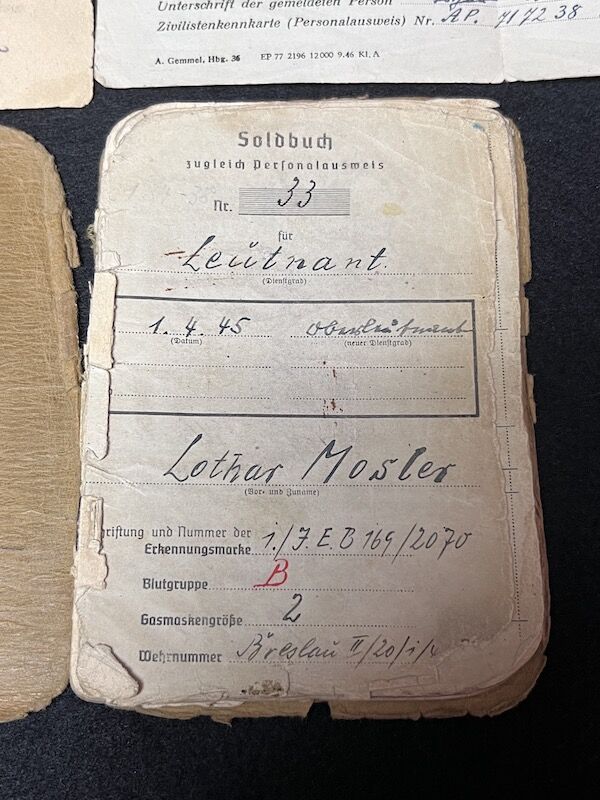 Unterschrift der gemeldeten Person
Zivilistenkennkarte (Personalausweis) Nr. AP. 717238
A. Gemmel, Hbg. 36 EP 77 2196 12000 9.46 Kl. A
Soldbuch
zugleich Personalausweis
Nr. 33
für
Leutnant.
(Dienstgrad)
1. 4. 45 Oberleutnant
(Datum) (neuer Dienstgrad)
Lothar Mosler
(Vor- und Zuname)
riftung und Nummer der
Erkennungsmarke 1./J.E.B 169/2070
Blutgruppe B
Gasmaskengröße 2
Wehrnummer Breslau II/20/1/